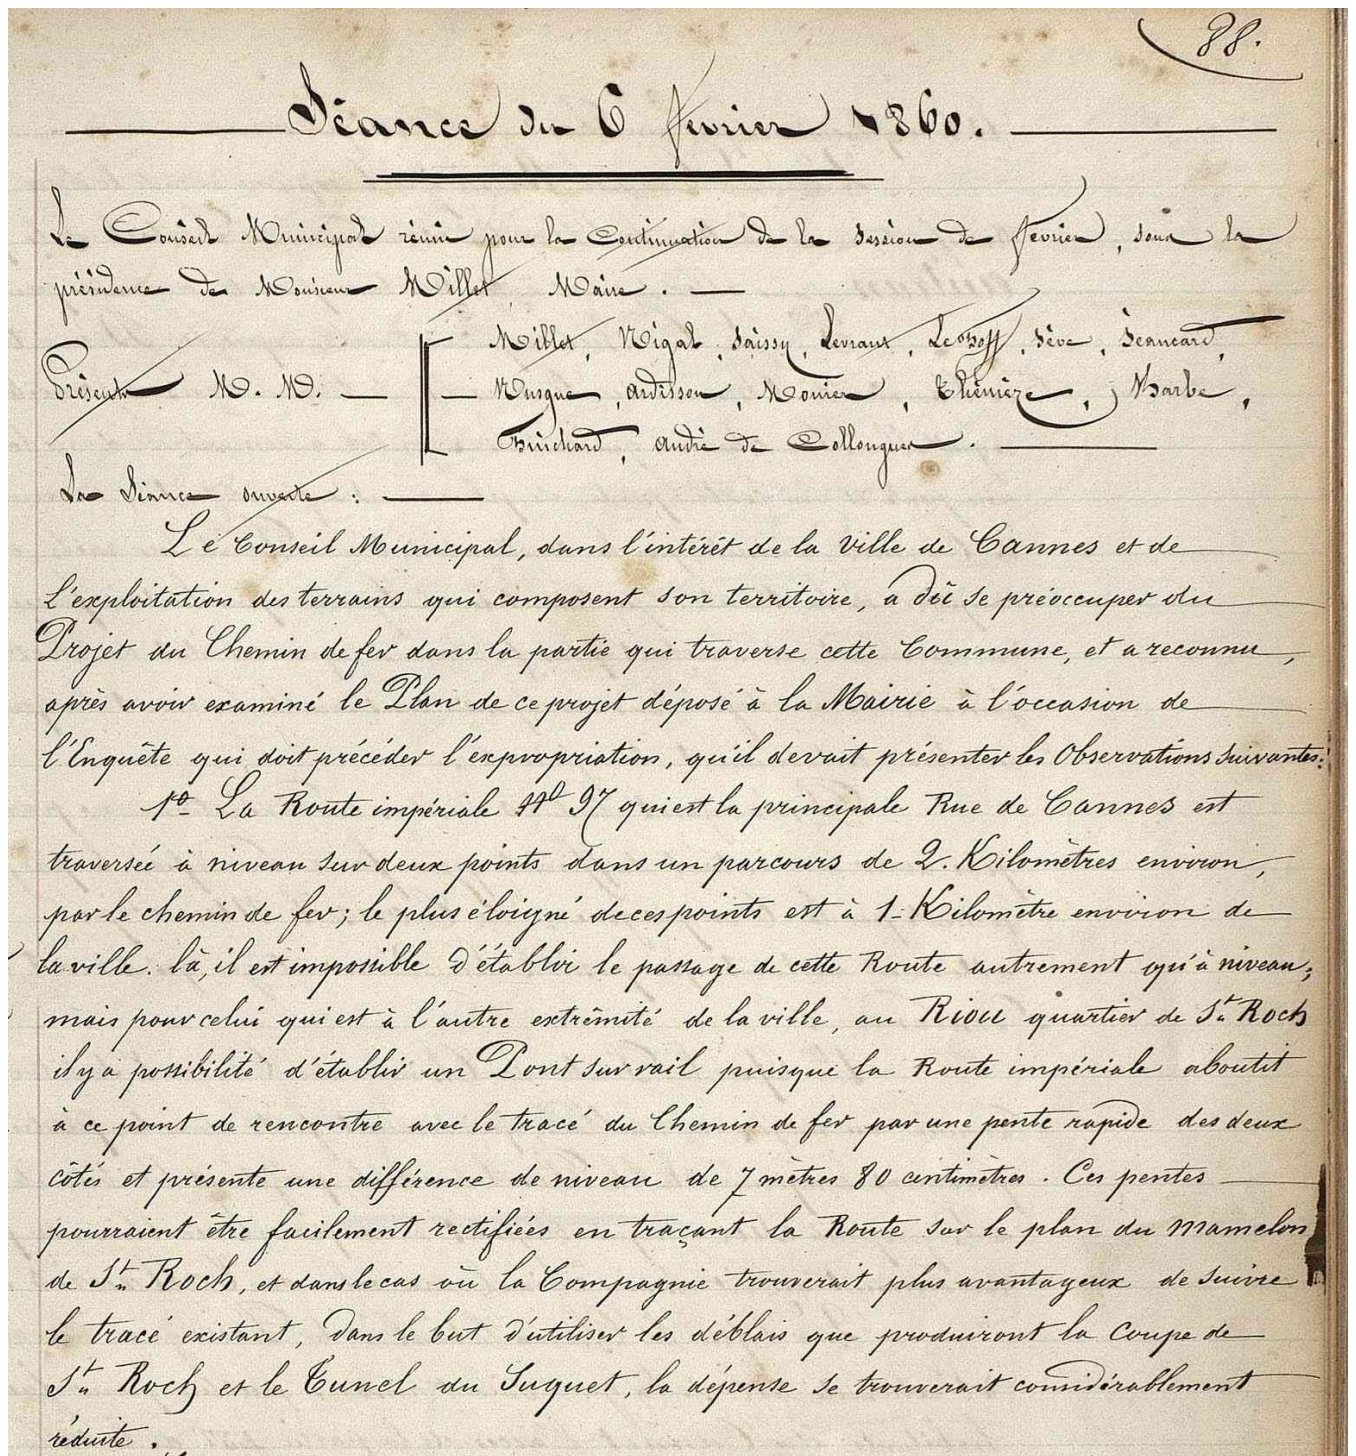 88.
Séance du 6 février 1860.
Le Conseil Municipal réuni pour la Continuation de la session de février, sous la
présidence de Monsieur Millet, Maire.
Millet, Rigal, Saissy, Levraut, Le Goff, Sève, Jeancard,
Présents M. M.
Musque, Ardisson, Monier, Thénière, Barbe,
Guichard, André de Collongues.
La Séance ouverte :
Le Conseil Municipal, dans l'intérêt de la Ville de Cannes et de
l'exploitation des terrains qui composent son territoire, a dû se préoccuper du
Projet du Chemin de fer dans la partie qui traverse cette Commune, et a reconnu,
après avoir examiné le Plan de ce projet déposé à la Mairie à l'occasion de
l'Enquête qui doit précéder l'expropriation, qu'il devait présenter les Observations suivantes:
1º La Route impériale Nº 97 qui est la principale Rue de Cannes est
traversée à niveau sur deux points dans un parcours de 2. Kilomètres environ,
par le chemin de fer; le plus éloigné de ces points est à 1 Kilomètre environ de
la ville. là, il est impossible d'établir le passage de cette Route autrement qu'à niveau;
mais pour celui qui est à l'autre extrêmité de la ville, au Riou quartier de St Roch
il y a possibilité d'établir un Pont sur rail puisque la Route impériale aboutit
à ce point de rencontre avec le tracé du Chemin de fer par une pente rapide des deux
côtés et présente une différence de niveau de 7 mètres 80 centimètres. Ces pentes
pourraient être facilement rectifiées en traçant la Route sur le plan du mamelon
de St Roch, et dans le cas où la Compagnie trouverait plus avantageux de suivre
le tracé existant, dans le but d'utiliser les déblais que produiront la Coupe de
St Roch et le Tunel du Suquet, la dépense se trouverait considérablement
réduite.